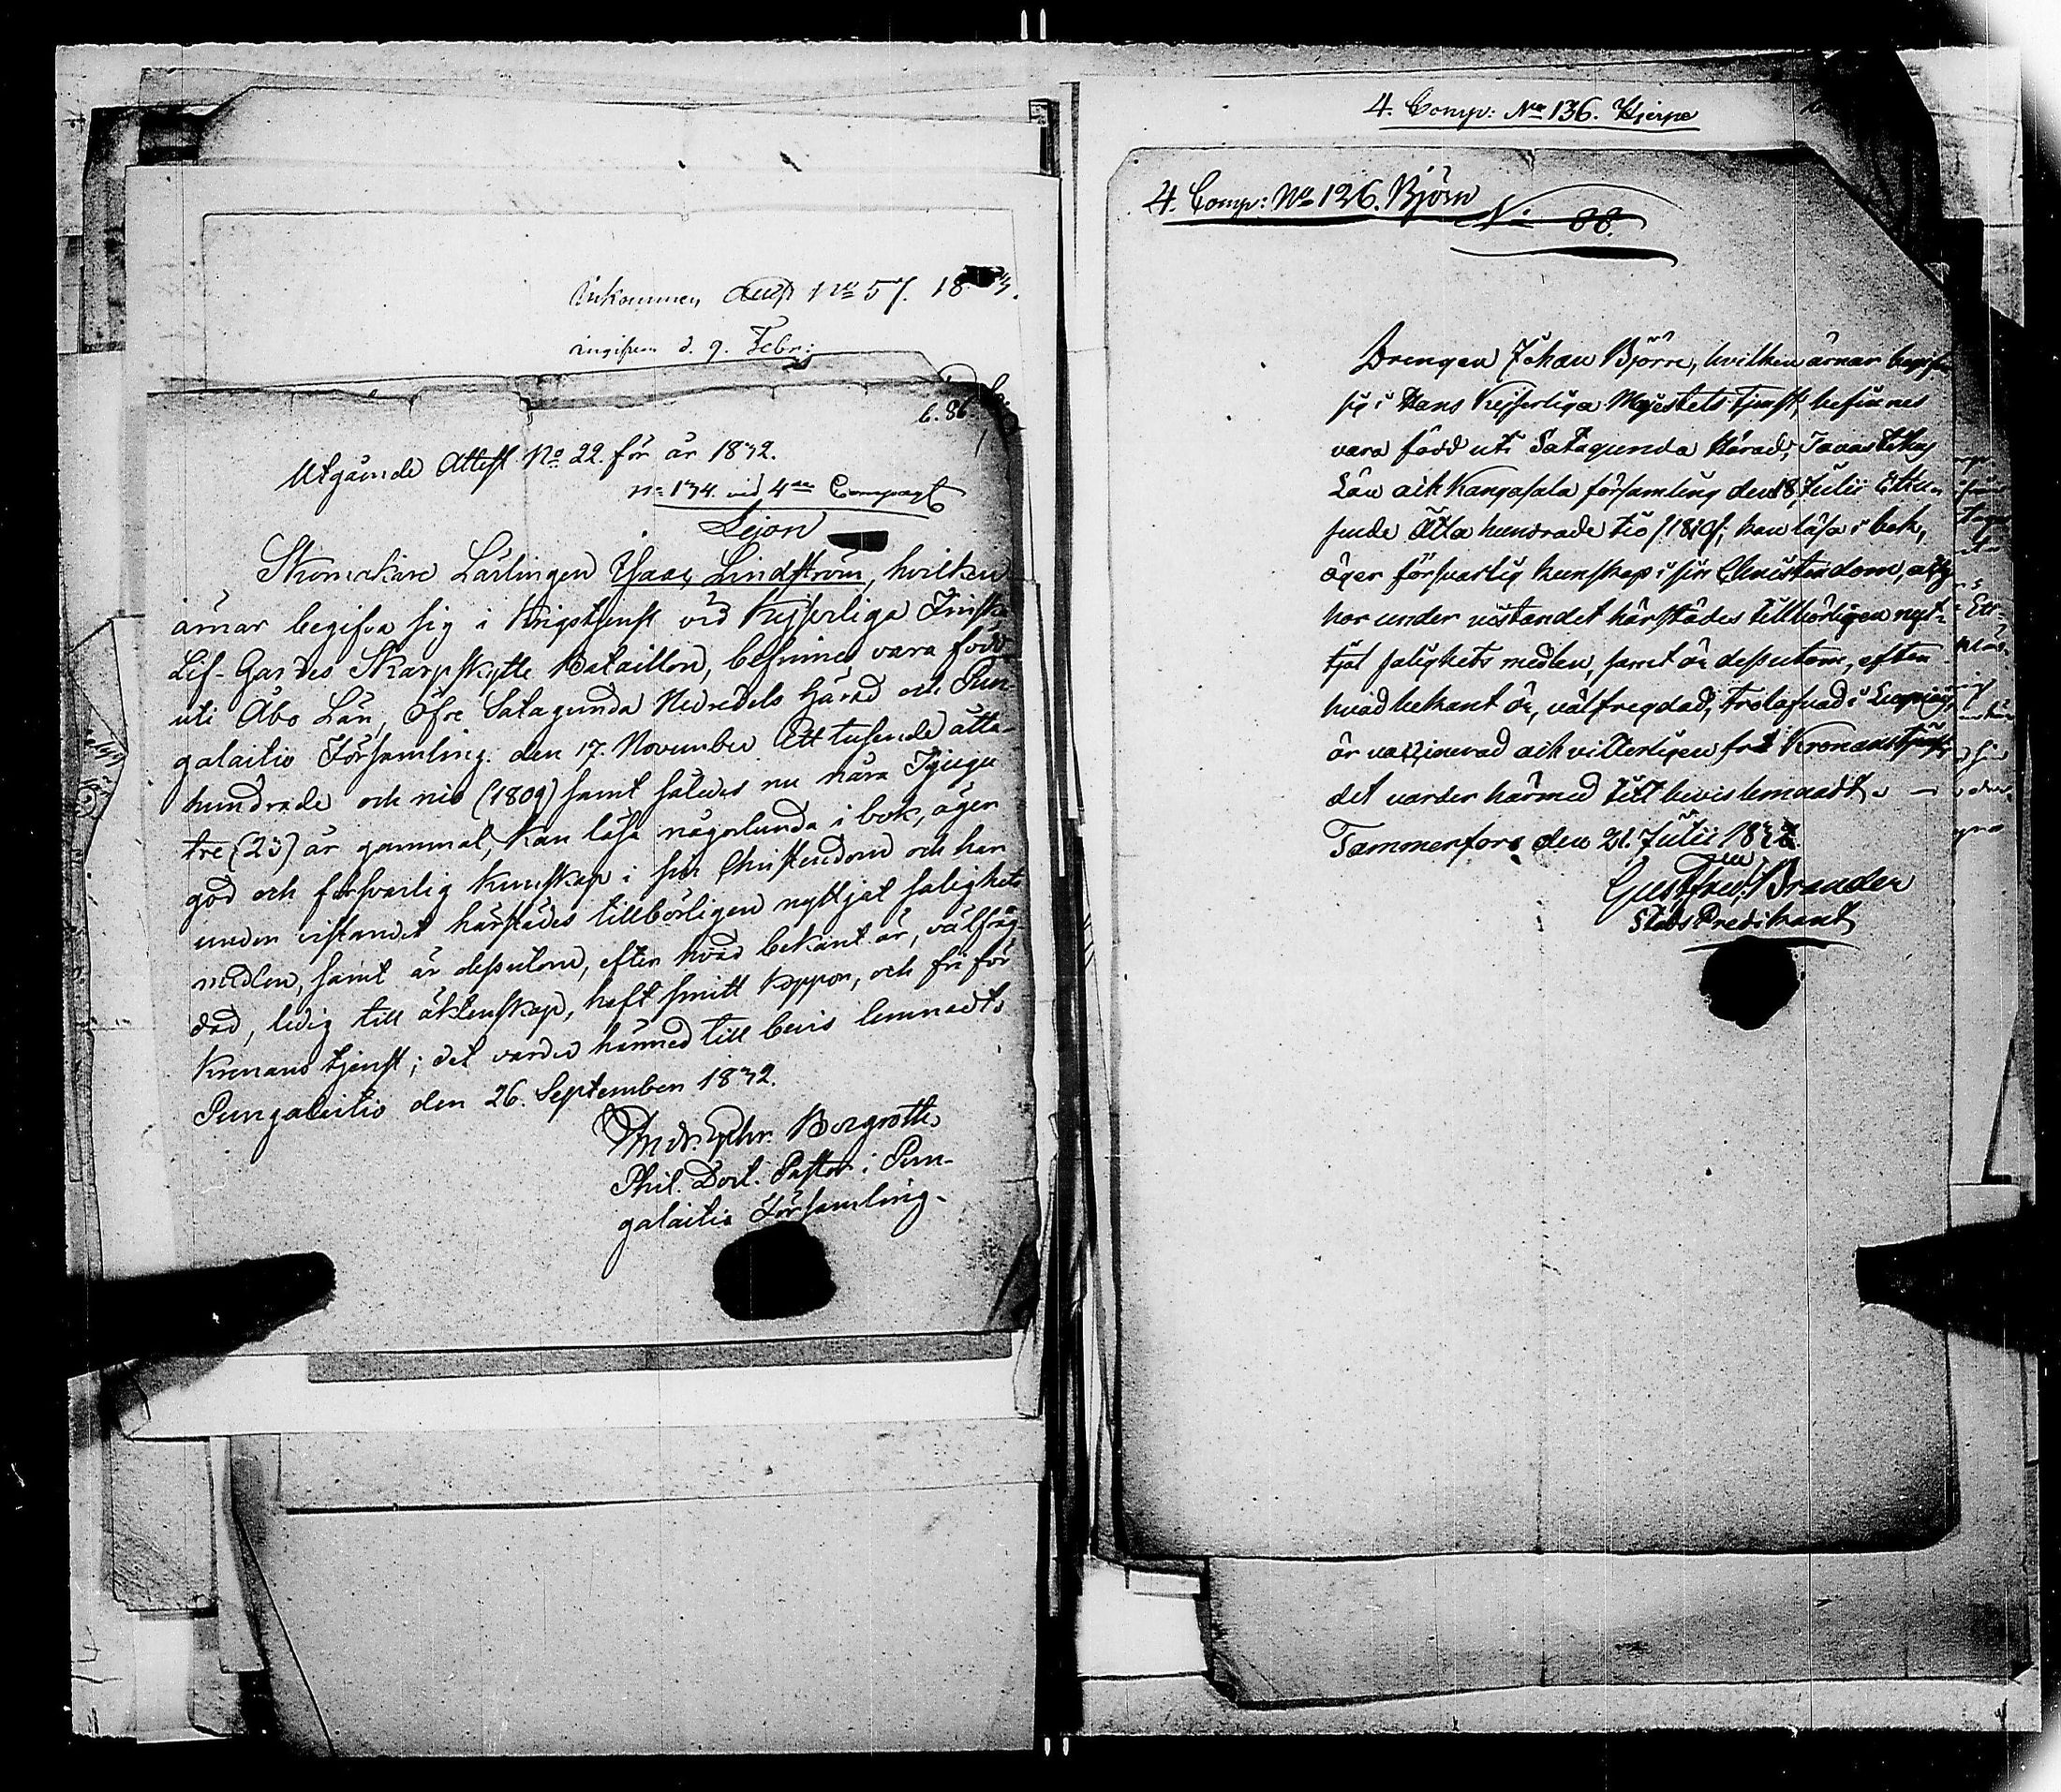 Inkommen Attest No 57. 18
ingifven d. 9. Febr:
b. 86.
Utgående Attest No 22. för år 1832.
No 134. vid 4de Compagt
Lejon
Skomakare Lärlingen Isaac Lindström, hvilken
ämnar begifva sig i Krigstjenst vid Kejserliga Finska
Lif-Gardes Skarpskytte Bataillon, befinnes vara född
uti Åbo Län, Öfre Satagunda Nedredels Härad och Pun-
galaitio Församling den 17. November Ett tusende åtta-
hundrade och nio (1809) samt således nu nära Tjugu
tre (23) år gammal, kan läsa någorlunda i bok, äger
god och försvarlig kunskap i sin Christendom och har
under vistandet härstädes tillbörligen nyttjat salighets
medlen, samt är dessutom, efter hvad bekant är, välfräg-
dad, ledig till äktenskap, haft smitt koppor, och fri för
Kronans tjenst; det varder härmed till bevis lemnadt.
Pungalaitio den 26. September 1832.
And. Ephr. Borgrotte
Phil. Doct. Pastor i Pun-
galaitio Församling.
4. Comp: No 136. Hjerpe
4. Comp: No 126. Björn
No 88.
Drengen Johan Björn, hvilken ärnar begifva
sig i Hans Kejserliga Majestets tjenst, befinnes
vara född uti Satagunda Härad, Tavastehus
Län och Kangasala församling den 18 Julii Ettu-
sende Åtta hundrade tio /1810/; kan läsa i bok,
äger försvarlig kunskap i sin Christendom, och
har under vistandet härstädes tillbörligen nytt-
tjat salighets medlen, samt är dessutom, efter
hvad bekant är, välfregdad, trolofvad i
är vaccinerad och vitterligen fri Kronans tjenst;
det varder härmed till bevis lemnadt. —
Tammerfors den 21. Julii 1832.
Gust: Fred: Brander
Stads Predikant